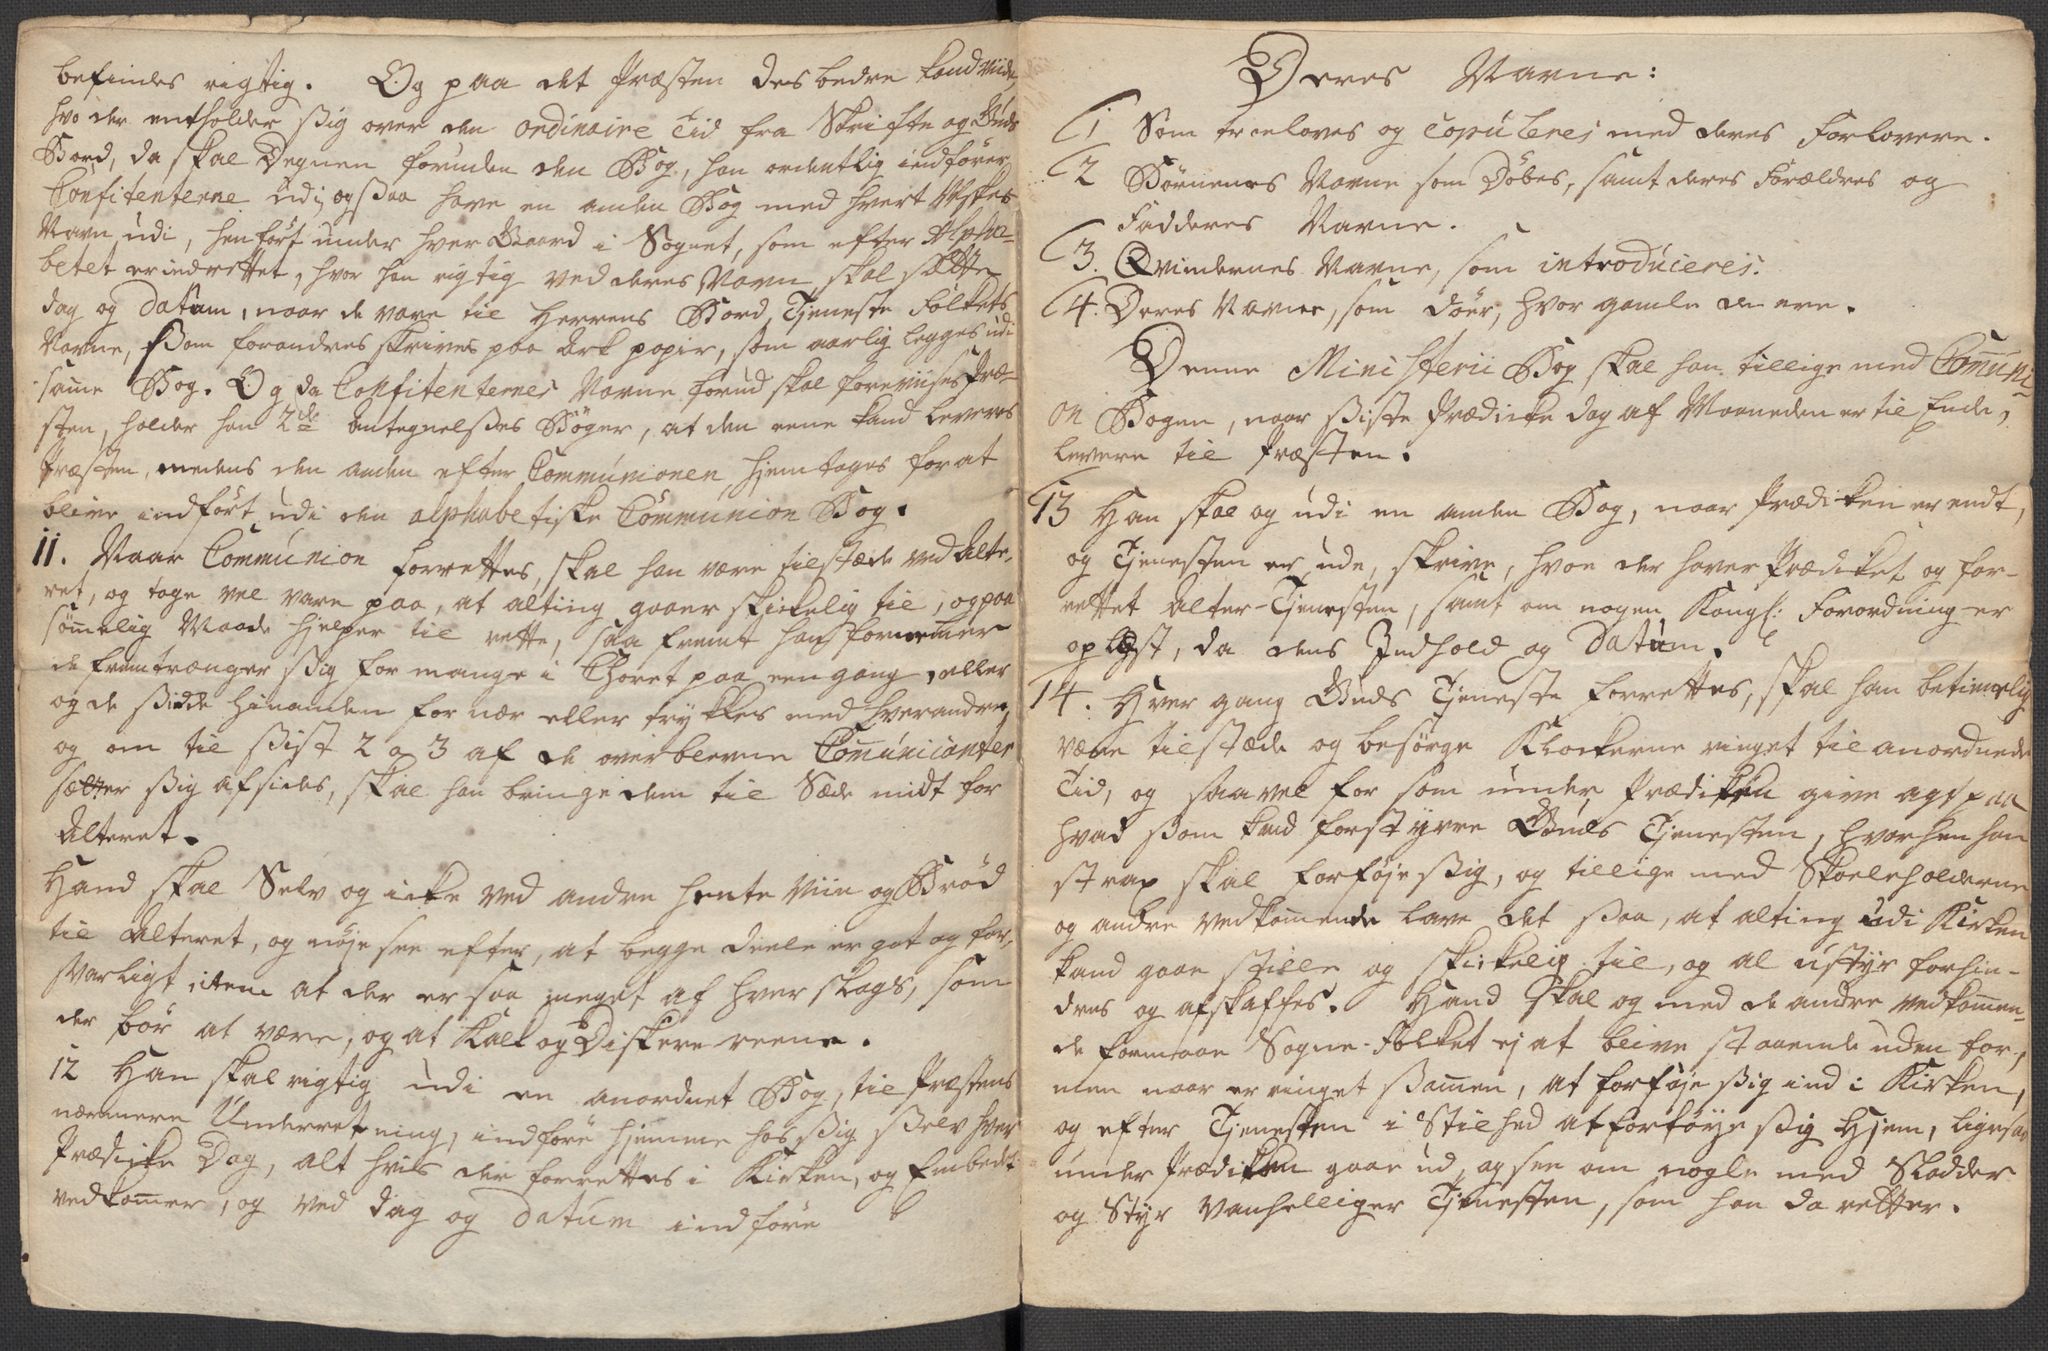 befindes rigtig. Og paa det Præsten des bedre kand viide,
hvo der entholder ßig over den ordinaire Tid fra Skrifte og Guds
Bord, da skal Degnen foruden den Bog, han ordentlig indfører
Confitenterne udi, ogßaa have en anden Bog med hvert
Navn udi, henført under hver Gaard i Sognet, som efter Alpha-
betet er indrettet, hvor han rigtig ved deres Navn skal sætte
dag og Datum, naar de vare til Herrens Bord, Tjeneste Folkets
Navne, ßom forandres skrives paa Ark papir, som aarlig legges udi
samme Bog. Og da Confitenternes Navne forud skal foreviises Præ-
sten, holder han 2de Antegnelßes Bøger, at den eene kand leveres
Præsten, medens den anden efter Communionen hjemtages for at
blive indført udi den alphabetiske Communion Bog.
11. Naar Communion forrettes, skal han være tilstæde ved Alte-
ret, og tage vel vare paa, at alting gaaer skikkelig til, og paa
sømmelig Maade hjelper til rette, saa fremt han fornemmer
de fremtrænger ßig for mange i Choret paa een gang, eller
og de ßidde hinanden for nær eller trykkes med hverandre,
og om til ßist 2 a 3 af de overblevne Communicanter
sætter ßig afsides, skal han bringe dem til Sæde midt for
Alteret.
Hand skal Selv og icke ved andre hente Viin og Brød
til Alteret, og nøje see efter, at begge deele er got og for-
svarligt, item at der er saa meget af hver slags, som
der bør at være, og at Kalk og Disk ere reene.
12 Han skal rigtig udi en anordnet Bog, til Præstens
nærmere Underretning, indføre hjemme hos ßig ßelv hver
Prædike Dag, alt hvis der forrettes i Kirken, og Embedet
vedkommer, og ved Dag og Datum indføre
Deres Navne:
1 Som troeloves og Copuleres med deres Forlovere.
2 Børnenes Navne som Døbes, samt deres Forældres og
Fadderes Navne.
3. Qvindernes Navne, som introduceres.
4. Deres Navne, som døer, hvor gamle de ere.
Denne Ministerii Bog skal han tillige med Communi-
on Bogen, naar ßiste Prædicke dag af Maaneden er til Ende,
levere til Præsten.
13 Han skal og udi en anden Bog, naar Prædiken er endt,
og Tjenesten er ude, skrive, hvem der haver Prædiket og for-
rettet Alter-Tjenesten, samt om nogen Kongl: Forordning er
oplæst, da dens Indhold og Datum.
14. Hver gang Guds Tjeneste forrettes, skal han betimelig
være tilstæde og besørge Klockerne ringet til anordnede
Tid, og saavel for som under Prædiken give agt paa
hvad ßom kand forstyrre Guds Tjenesten, hvorhen han
strax skal forføje ßig, og tillige med Skoeleholderne
og andre vedkommende lave det ßaa, at alting udi Kirken
kand gaae stille og skikkelig til, og al ustyr forhin-
dres og afskaffes. Hand skal og med de andre vedkommen-
de formaae Sogne-Folket ej at blive staaende uden for,
men naar er ringet ßammen, at forføje ßig ind i Kirken,
og efter Tjenesten i Stilhed at forføye ßig hjem, ligesaa
under Prædiken gaae ud, og see om nogle med Sladder
og Styr vanhelliger Tjenesten, som han da retter.